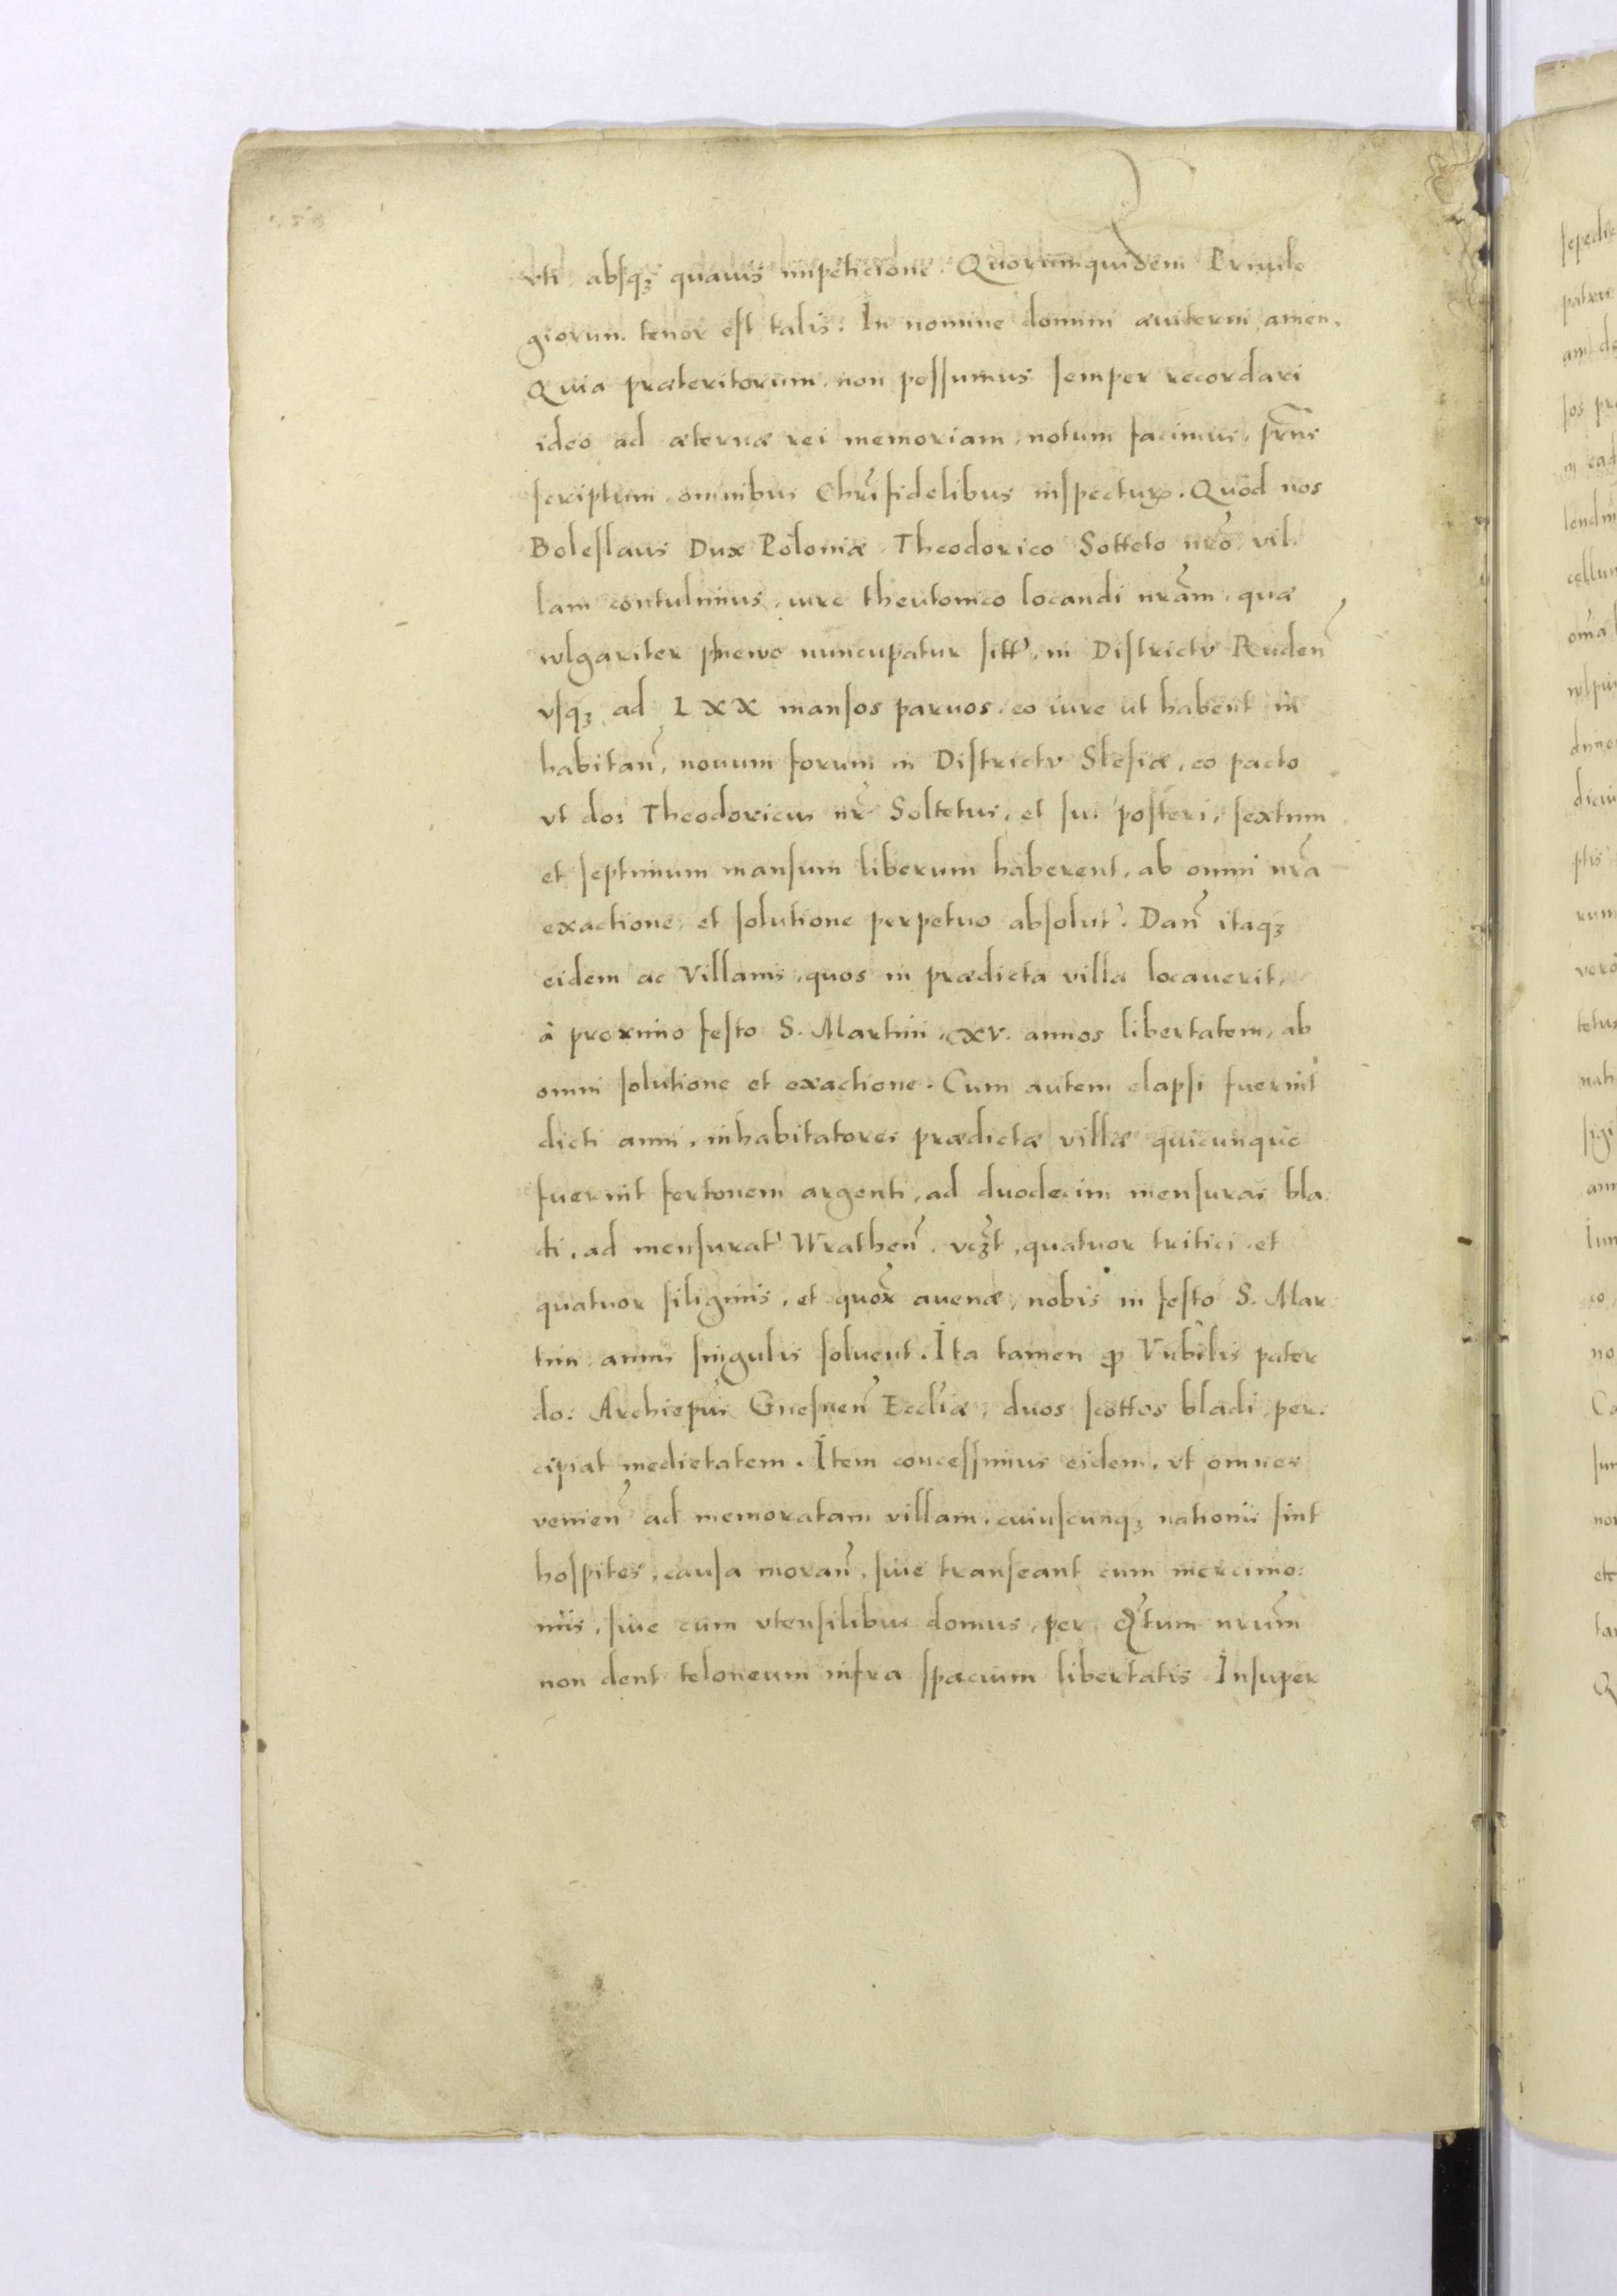 vti absq; quauis impeticione. Quorumquidem Priuile
giorum tenor est talis. In nomine domini æuiterni amen.
Quia præteritorum non possumus semper recordari
ideo ad æternæ rei memoriam, notum facimus, pr̃ns
scriptum omnibus Chr̃ifidelibus inspecturꝫ. Quod nos
Boleslaus Dux Poloniæ Theodorico Solteto nr̃o vil
lam contulimus, iure theutonico locandi nr̃am, quæ
wlgariter nuncupatur sitt', in Districtu Ruden̄
vsq; ad LXX mansos paruos, eo iure ut habent in
habitan̄, nouum forum in Districtu Slesiæ, eo pacto
vt do: Theodoricus nr̃ Soltetus, et sui posteri, sextum
et septimum mansum liberum haberent, ab omni nr̃a
exactione, et solutione perpetuo absolut'. Dan̄ itaq;
eidem ac Villanis, quos in prædicta villa locauerit,
à proximo festo S. Martini, xv. annos libertatem, ab
omni solutione et exactione. Cum autem elapsi fuerint
dicti anni, inhabitatores prædictæ villæ quicunque
fuerint fertonem argenti, ad duodecim mensuras bla
di, ad mensurat' Wratħen̄, vcꝫt, quatuor tritici et
quatuor siliginis, et quor̃ auenæ, nobis in festo S. Mar
tini annis singulis soluent. Ita tamen ꝙ Vn̄bilis pater
do: Archiep̃us Gnesnen̄ Eccl̃iæ, duos scottos bladi per:
cipiat medietatem. Item concessimus eidem, vt omnes
venien̄ ad memoratam villam, cuiuscunq; nationis sint
hospites, causa moran̄, siue transeant cum mercimo:
niis, siue cum vtensilibus domus, per nr̃um
non dent teloneum infra spacium libertatis Insuper